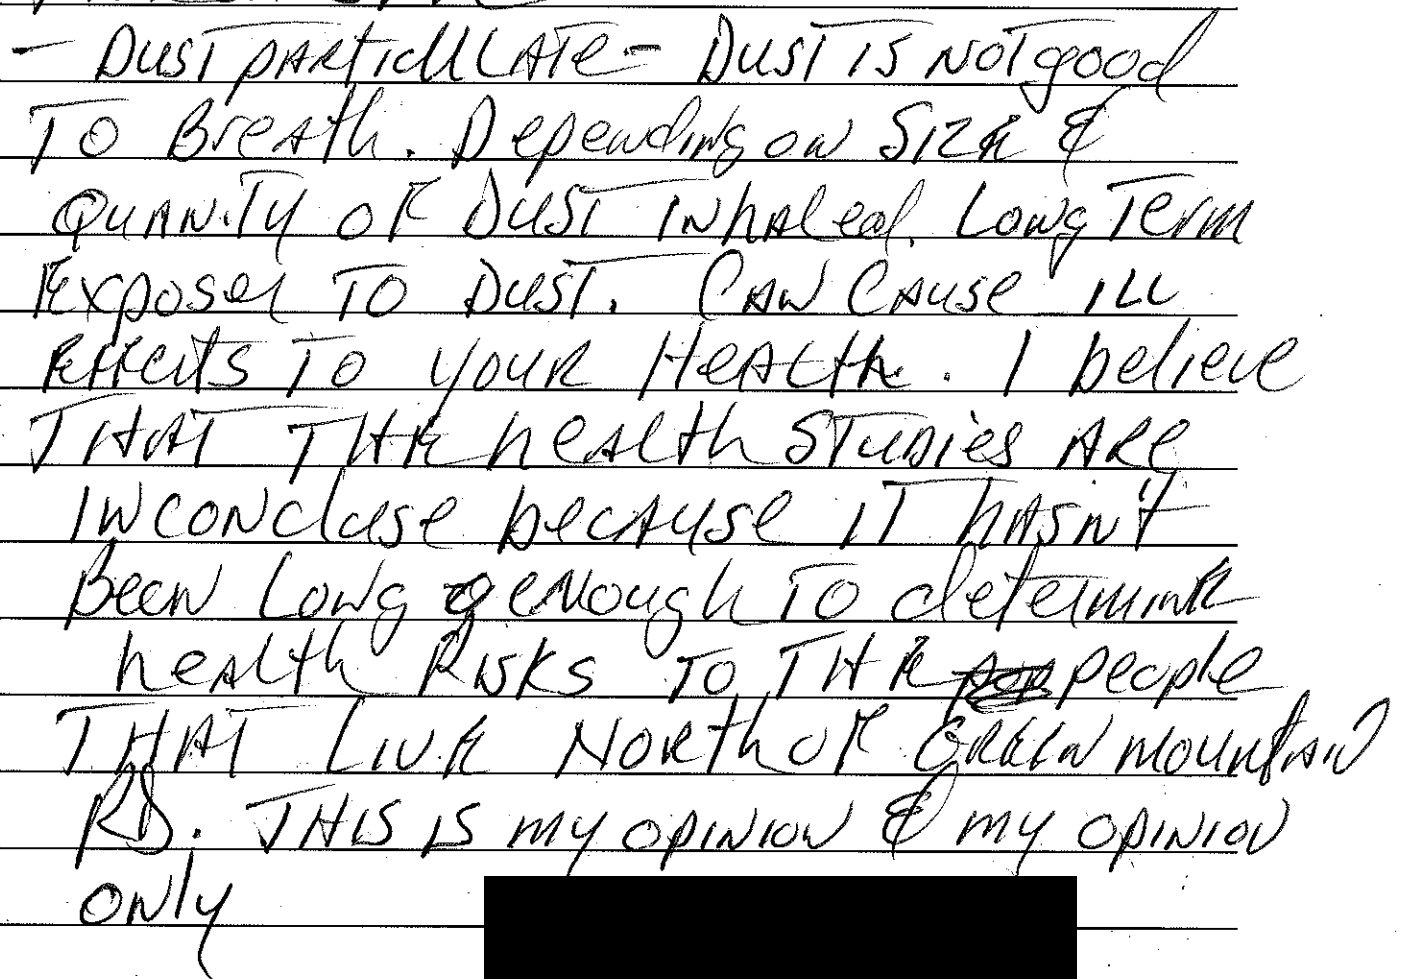 - Dust particulate - Dust is not good
To Breath. Depending on Size &
Quanity of Dust inhaled. Long Term
Exposer To Dust. Can Cause ill
Effects To your Health. I believe
That The health Studies Are
inconcluse because it hasn't
Been Long enough To determine
health Risks To The people
That Live North of Green mountain
RD. This is my opinion & my opinion
only